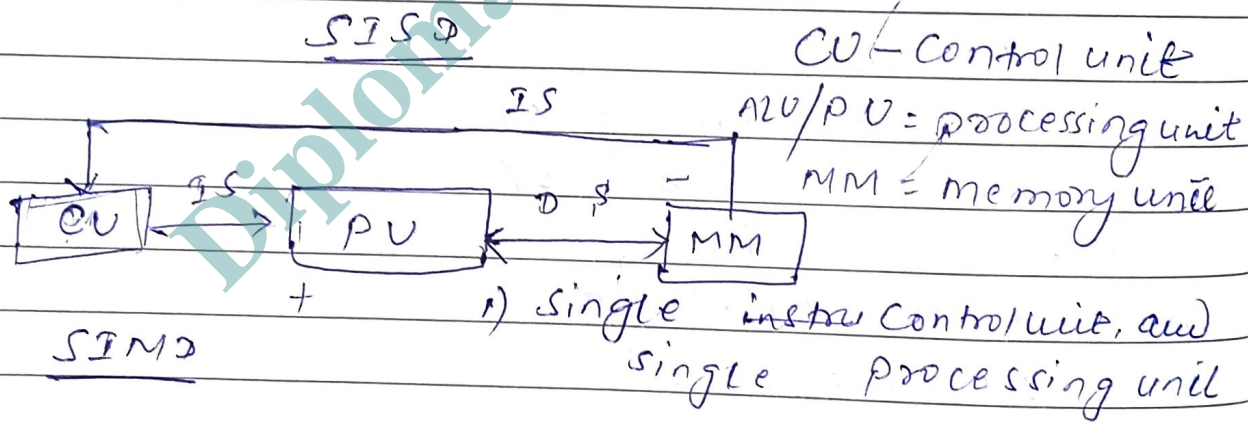 SISD
CU - Control unit
IS
ALU/PU = processing unit
MM = memory unit
CU
IS
PU
D S
MM
1) Single instru Control unit, and
single processing unit
SIMD
Diplom